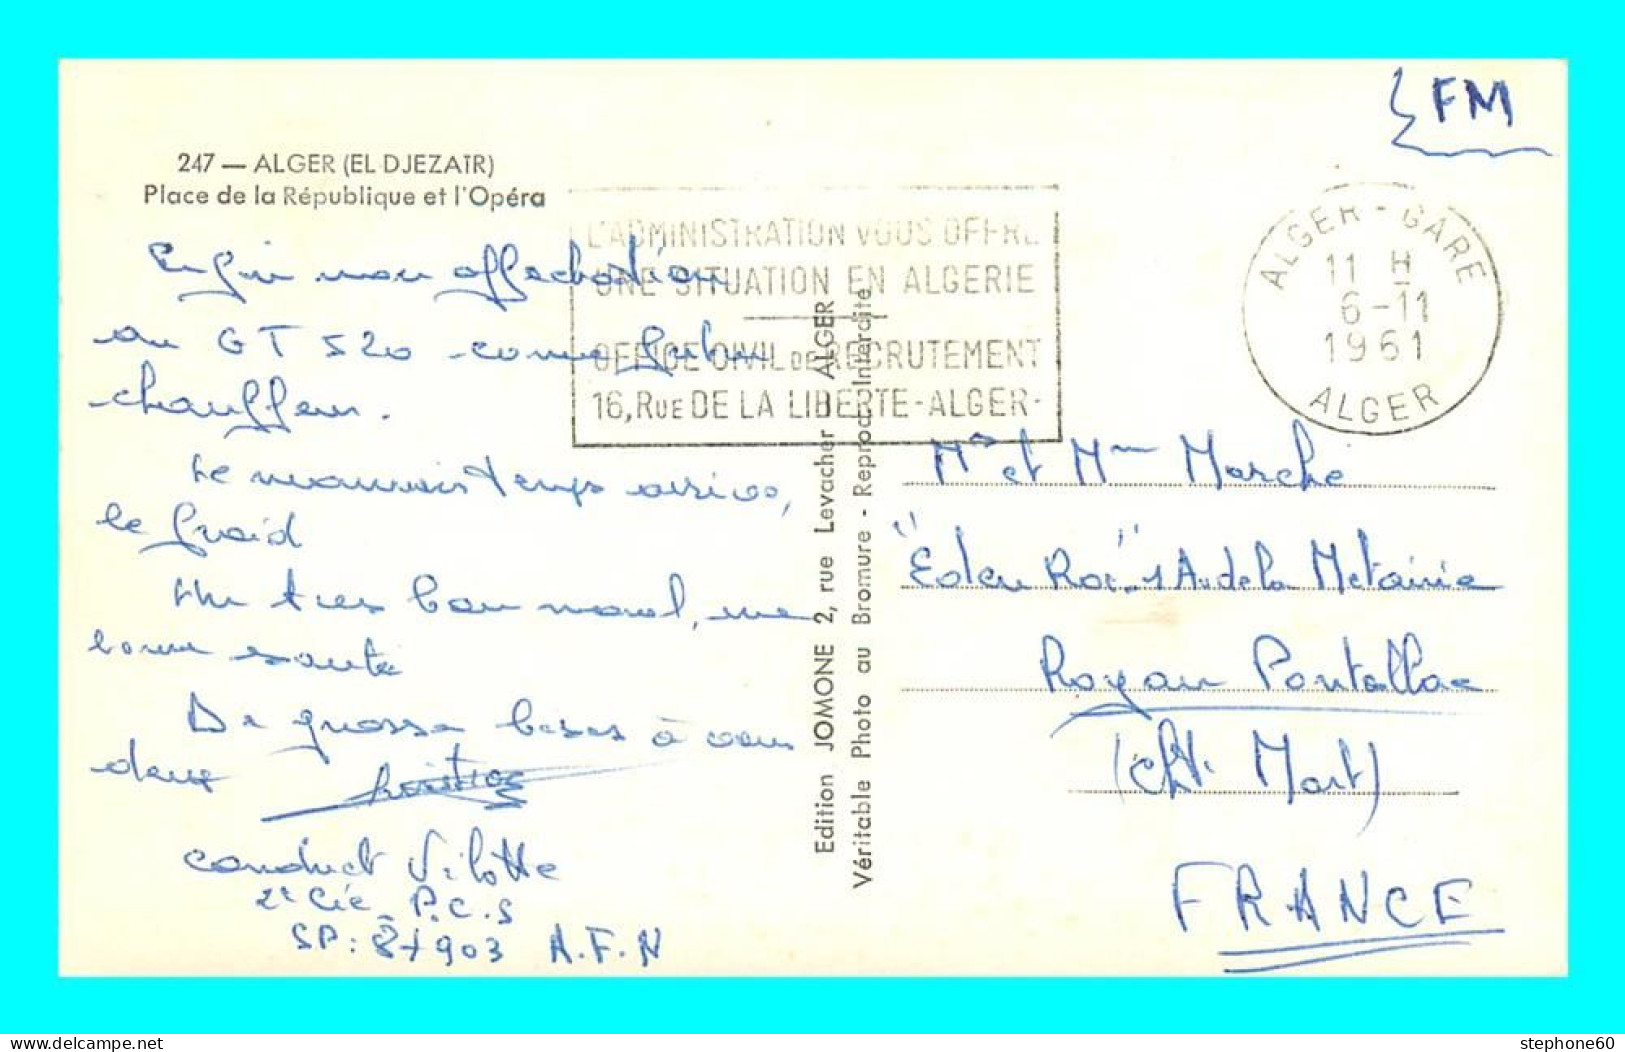 FM
247 — ALGER (EL DJEZAÏR)
Place de la République et l'Opéra
L'ADMINISTRATION VOUS OFFRE
UNE SITUATION EN ALGERIE
OFFICE CIVIL DE RECRUTEMENT
16, RUE DE LA LIBERTE - ALGER -
ALGER - GARE
11 H
6-11
1961
ALGER
Enfin mon affectation
au GT 520 comme futur
chauffeur.
Le mauvais temps arrive,
le froid
Un tres bon moral, une
bonne santé
De grosses bises à vous
deux
conduct Vilotte
2e Cie P.C.S
SP: 87903 A.F.N
Edition JOMONE 2, rue Levacher ALGER
Véritable Photo au Bromure - Reproduc. Interdite
Mr et Mme Marché
"Eden Roc" 1 Av de la Métairie
Royan Pontaillac
(Cht. Mart)
FRANCE
stephone60